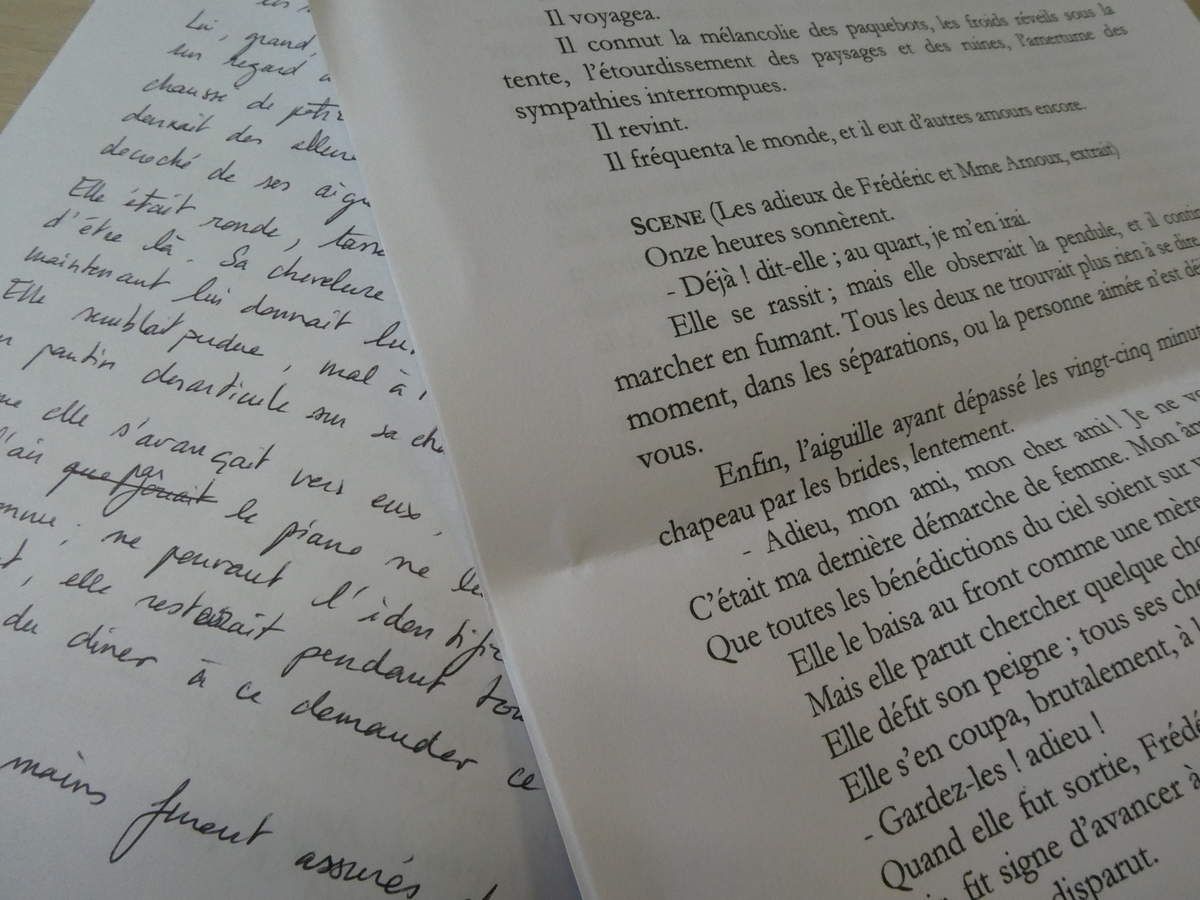 Lui, grand,
un regard
chausse de
donnait des allure
decoché de ses
Elle était ronde,
d'être là. Sa chevelure
maintenant lui donnait
Elle semblait perdue, mal à
pantin desarticulé sur sa
elle s'avançait vers eux,
l'air que par le piano ne
ne pouvant l'identifi
elle restait pendant
du diner à ce demander ce
mains furent assurés
Il voyagea.
Il connut la mélancolie des paquebots, les froids réveils sous la
tente, l'étourdissement des paysages et des ruines, l'amertume des
sympathies interrompues.
Il revint.
Il fréquenta le monde, et il eut d'autres amours encore.
SCENE (Les adieux de Frédéric et Mme Arnoux, extrait)
Onze heures sonnèrent.
- Déjà ! dit-elle ; au quart, je m'en irai.
Elle se rassit ; mais elle observait la pendule, et il contin
marcher en fumant. Tous les deux ne trouvait plus rien à se dire
moment, dans les séparations, ou la personne aimée n'est dé
vous.
Enfin, l'aiguille ayant dépassé les vingt-cinq minu
chapeau par les brides, lentement.
- Adieu, mon ami, mon cher ami ! Je ne v
C'était ma dernière démarche de femme. Mon âm
Que toutes les bénédictions du ciel soient sur v
Elle le baisa au front comme une mère
Mais elle parut chercher quelque cho
Elle défit son peigne ; tous ses che
Elle s'en coupa, brutalement, à
- Gardez-les ! adieu !
Quand elle fut sortie, Frédé
fit signe d'avancer à
disparut.